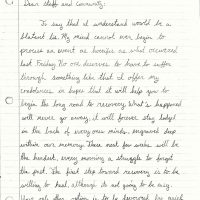 Dear staff and community:
To say that I understand would be a
blatant lie. My mind cannot even begin to
process an event as horrific as what occurred
last Friday. No one deserves to have to suffer
through something like that. I offer my
condolences in hopes that it will help you to
begin the long road to recovery. What's happened
will never go away, it will forever stay lodged
in the back of everyones minds, engraved deep
within our memory. These next few weeks will be
the hardest, every morning a struggle to forget
the past. The first step toward recovery is to be
willing to heal, although its not going to be easy.